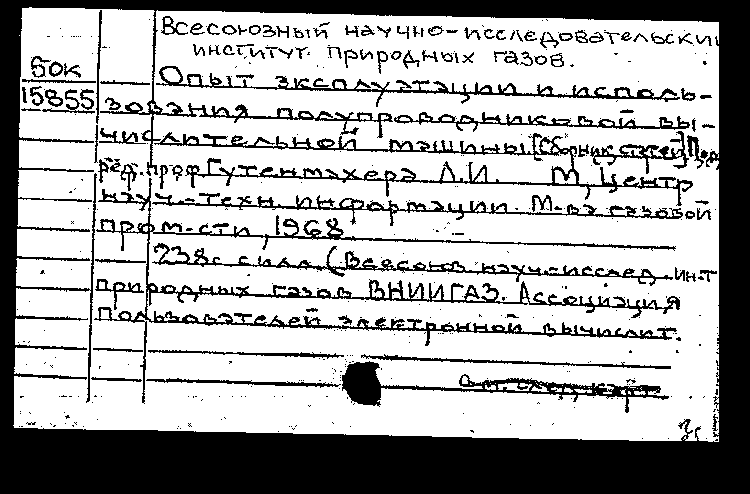 Всесоюзный научно-исследовательский
институт природных газов.
БОК
15855
Опыт эксплуатации и исполь-
зования полупроводниковой вы-
числительной машины [Сборник статей] Под
ред. проф Гутенмахера Л.И. М, Центр
науч.-техн. информации М-ва газовой
пром-сти, 1968
238с с илл (Всесоюз науч-исслед. ин-т
природных газов ВНИИГАЗ. Ассоциация
пользователей электронной вычислит.
см. след. карт.